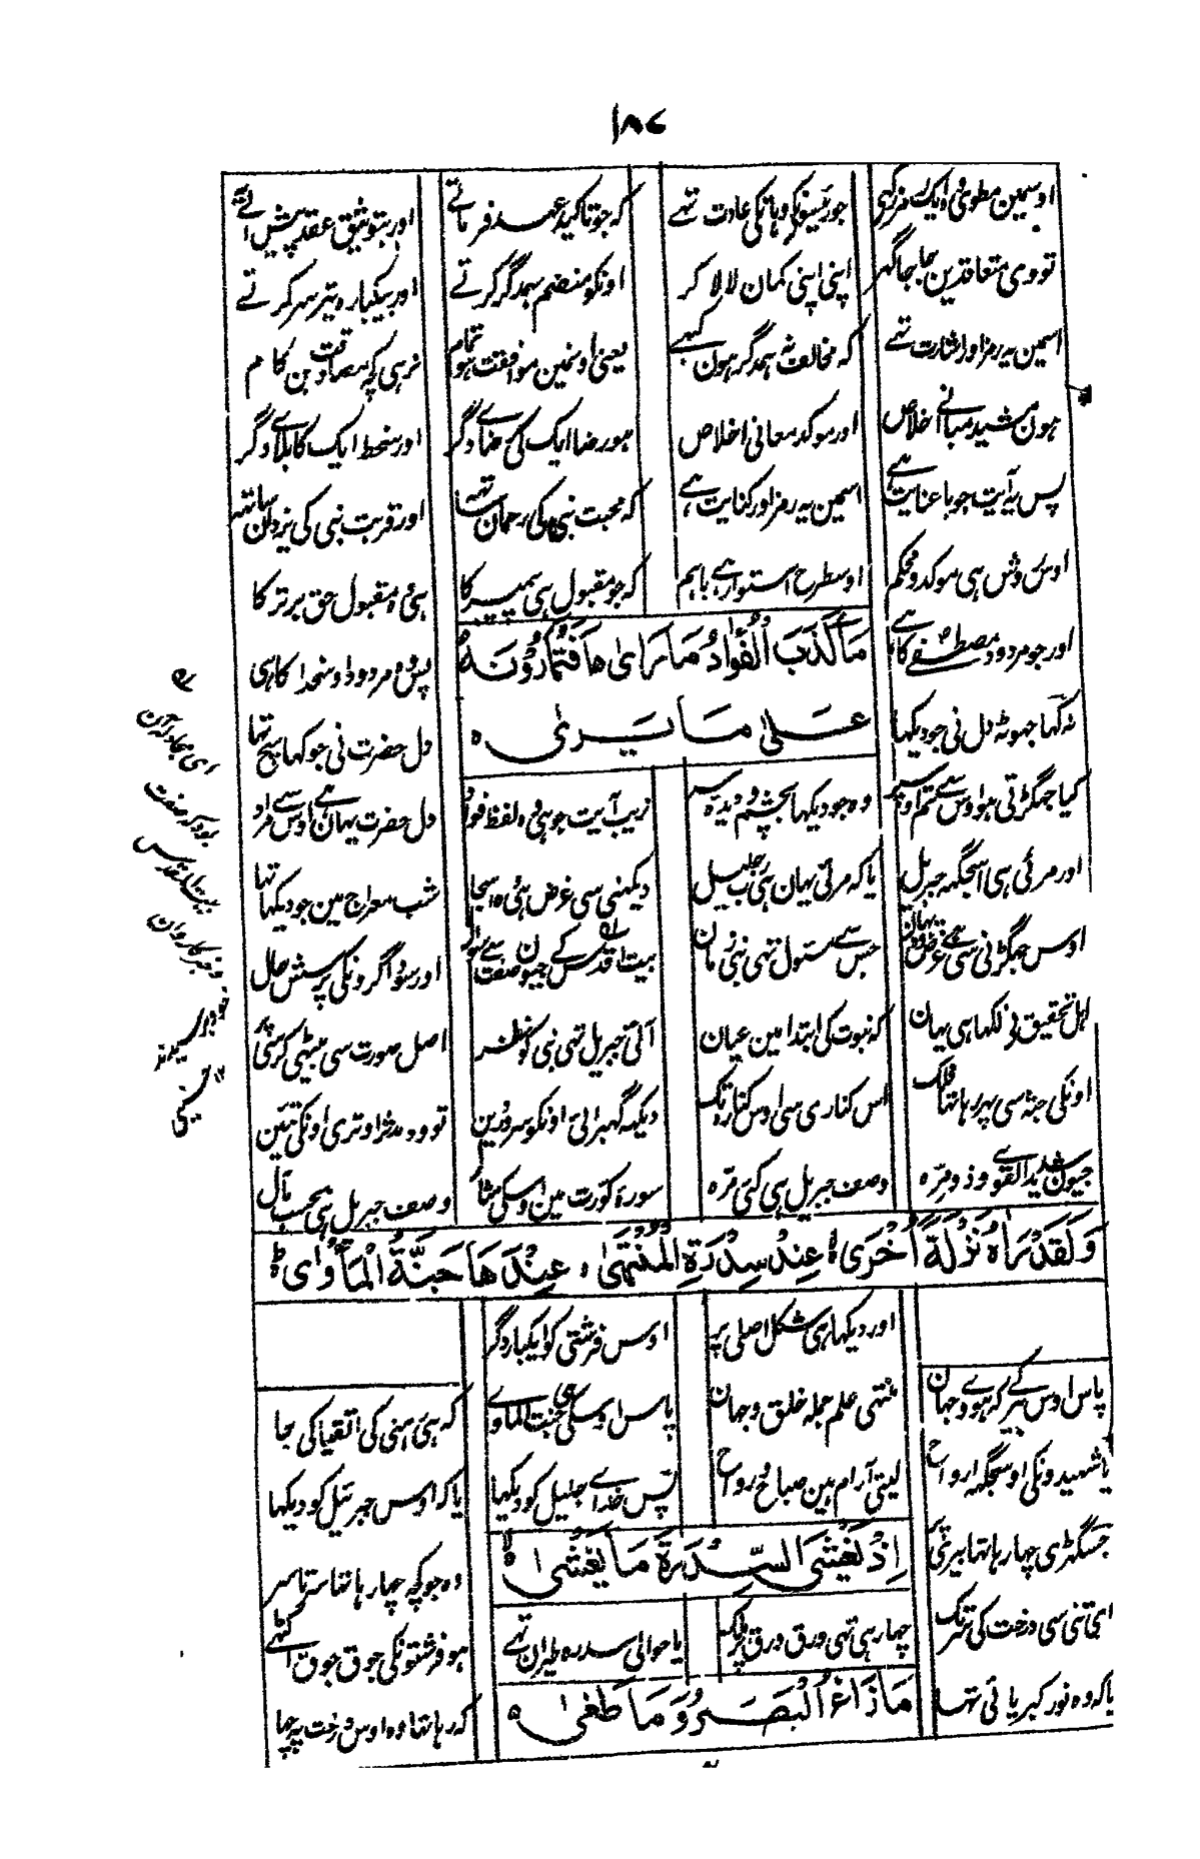 ۱۸۷
اوسمین مطوی ہی ایک رمز کہی جو رئیسونکی وہانکی عادت تہے کہ جو تاکید عہد فرماتے اور بتوثیق عقد پیش آتے
تو وہی متعاقدین جا جا گہر اپنی اپنی کمان لا لا کر اونکو منضم بہمدگر کرتے اور بیکبارہ تیر سر کرتے
اسمین یہ رمز اور اشارت تہے کہ مخالف نہ ہمدگر ہون کبہے یعنی اونمین موافقت ہو تمام نرہی کچہ مصادقت بن کام
ہون مشید مبانے اخلاص اور موکد معانی اخلاص ہو رضا ایک کی رضاے دگر اور سخط ایک کا بلاے دگر
پس یہ آیت جو با عنایت ہے اسمین یہ رمز اور کنایت ہے کہ محبت نبی کی رحمان ساتہہ اور قربت نبی کی یزدان ساتہہ
اوس روش ہی موکد و محکم اوسطرح استوار ہے باہم کہ جو مقبول ہی پیمبر کا ہی وہ مقبول حق برتر کا
اور جو مردود مصطفے کا ہے پس وہ مردود اوس خدا کا ہی
مَا كَذَبَ الْفُؤَادُ مَا رَاٰى ہ اَفَتُمَارُوْنَهٗ
عَلٰى مَا يَرٰى ہ
نہ کہا جہوٹہ دل نی جو دیکہا دل حضرت نی جو کہا سچ تہا
کیا جہگڑتی ہو اوس سے تم وہ جو دیکہا بچشم دیدہ سر زیب آیت جو ہی وہ لفظ فواد دل حضرت یہان ہے اوس سے مراد
اور مرئی ہی اسجگہہ جبریل یا کہ مرئی یہان ہی رب جلیل دیکہنی سی غرض ہی وہ اسجا شب معراج مین جو دیکہا تہا
اوس جہگڑنی سی ہے غرض یہان جس سے مسئول تہی نبی زمان بیت اقدس کے جیون صفت سے سوال اور سوداگرونکی پرسش حال
اہل تحقیق نی لکہا ہی یہان کہ نبوت کی ابتدا مین عیان آئی جبریل تہی نبی کو نظر اصل صورت سی بیٹہی کرسی پر
اونکی جثہ سی بہر رہا تہا فلک اس کناری سی اوس کنارہ تک دیکہہ گہبرائی اونکو سرور دین تو وہ مدثر اوتری اونکی تئین
جیون شدید القوے و ذو مرہ وصف جبریل ہی کئی مرہ سورۂ کورت مین اوسکی مثال وصف جبریل ہی بحسب مآل
وَلَقَدْ رَاٰهُ نَزْلَةً اُخْرٰى ہ عِنْدَ سِدْرَةِ الْمُنْتَهٰى ہ عِنْدَهَا جَنَّةُ الْمَاْوٰى ہ
اور دیکہا ہی شکل اصلی پر اوس فرشتی کو ایکبار دگر
پاس اوس بیر کے کہ ہووے جہان منتہی علم جملہ خلق و جہان پاس اوسکی ہی جنت الماوے کہ ہی رہنی کی اتقیا کی جا
یا شہیدونکی اوسجگہہ ارواح لیتی آرام ہین صباح و رواح پس خداے جلیل کو دیکہا یا کہ اوس جبرئیل کو دیکہا
جسگہڑی چہا رہا تہا بیری پر وہ جو کچہ چہا رہا تہا سرتاسر
اِذْ يَغْشَى السِّدْرَةَ مَا يَغْشٰى ہ
اپنی تنی سی درخت کی سرتک چہا رہی تہی ورق ورق پر ملک یا حوالی سدرہ طیران تہے ہو فرشتونکی جوق جوق اکٹہے
یا کہ وہ نور کبریائی تہا کہ رہا تہا وہ اوس درخت پہ چہا
مَا زَاغَ الْبَصَرُ وَمَا طَغٰى ہ